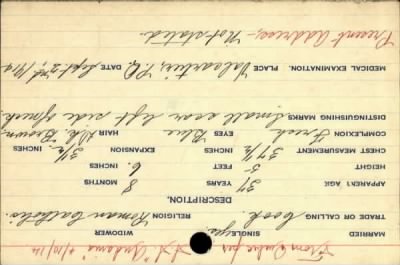 From Quebec per
S.S. "Andania" 4/10/14
MARRIED SINGLE yes. WIDOWER
TRADE OR CALLING Cook. RELIGION Roman Catholic.
DESCRIPTION.
APPARENT AGE 31 YEARS 8 MONTHS
HEIGHT 5 FEET 6 INCHES
CHEST MEASUREMENT 37½ INCHES EXPANSION 3½
COMPLEXION Fresh EYES Blue HAIR Dk. Brown
DISTINGUISHING MARKS Small scar left side of neck.
MEDICAL EXAMINATION. PLACE Valcartier, P.Q. DATE Sept. 23rd, 1914
Present Address:- Not stated.